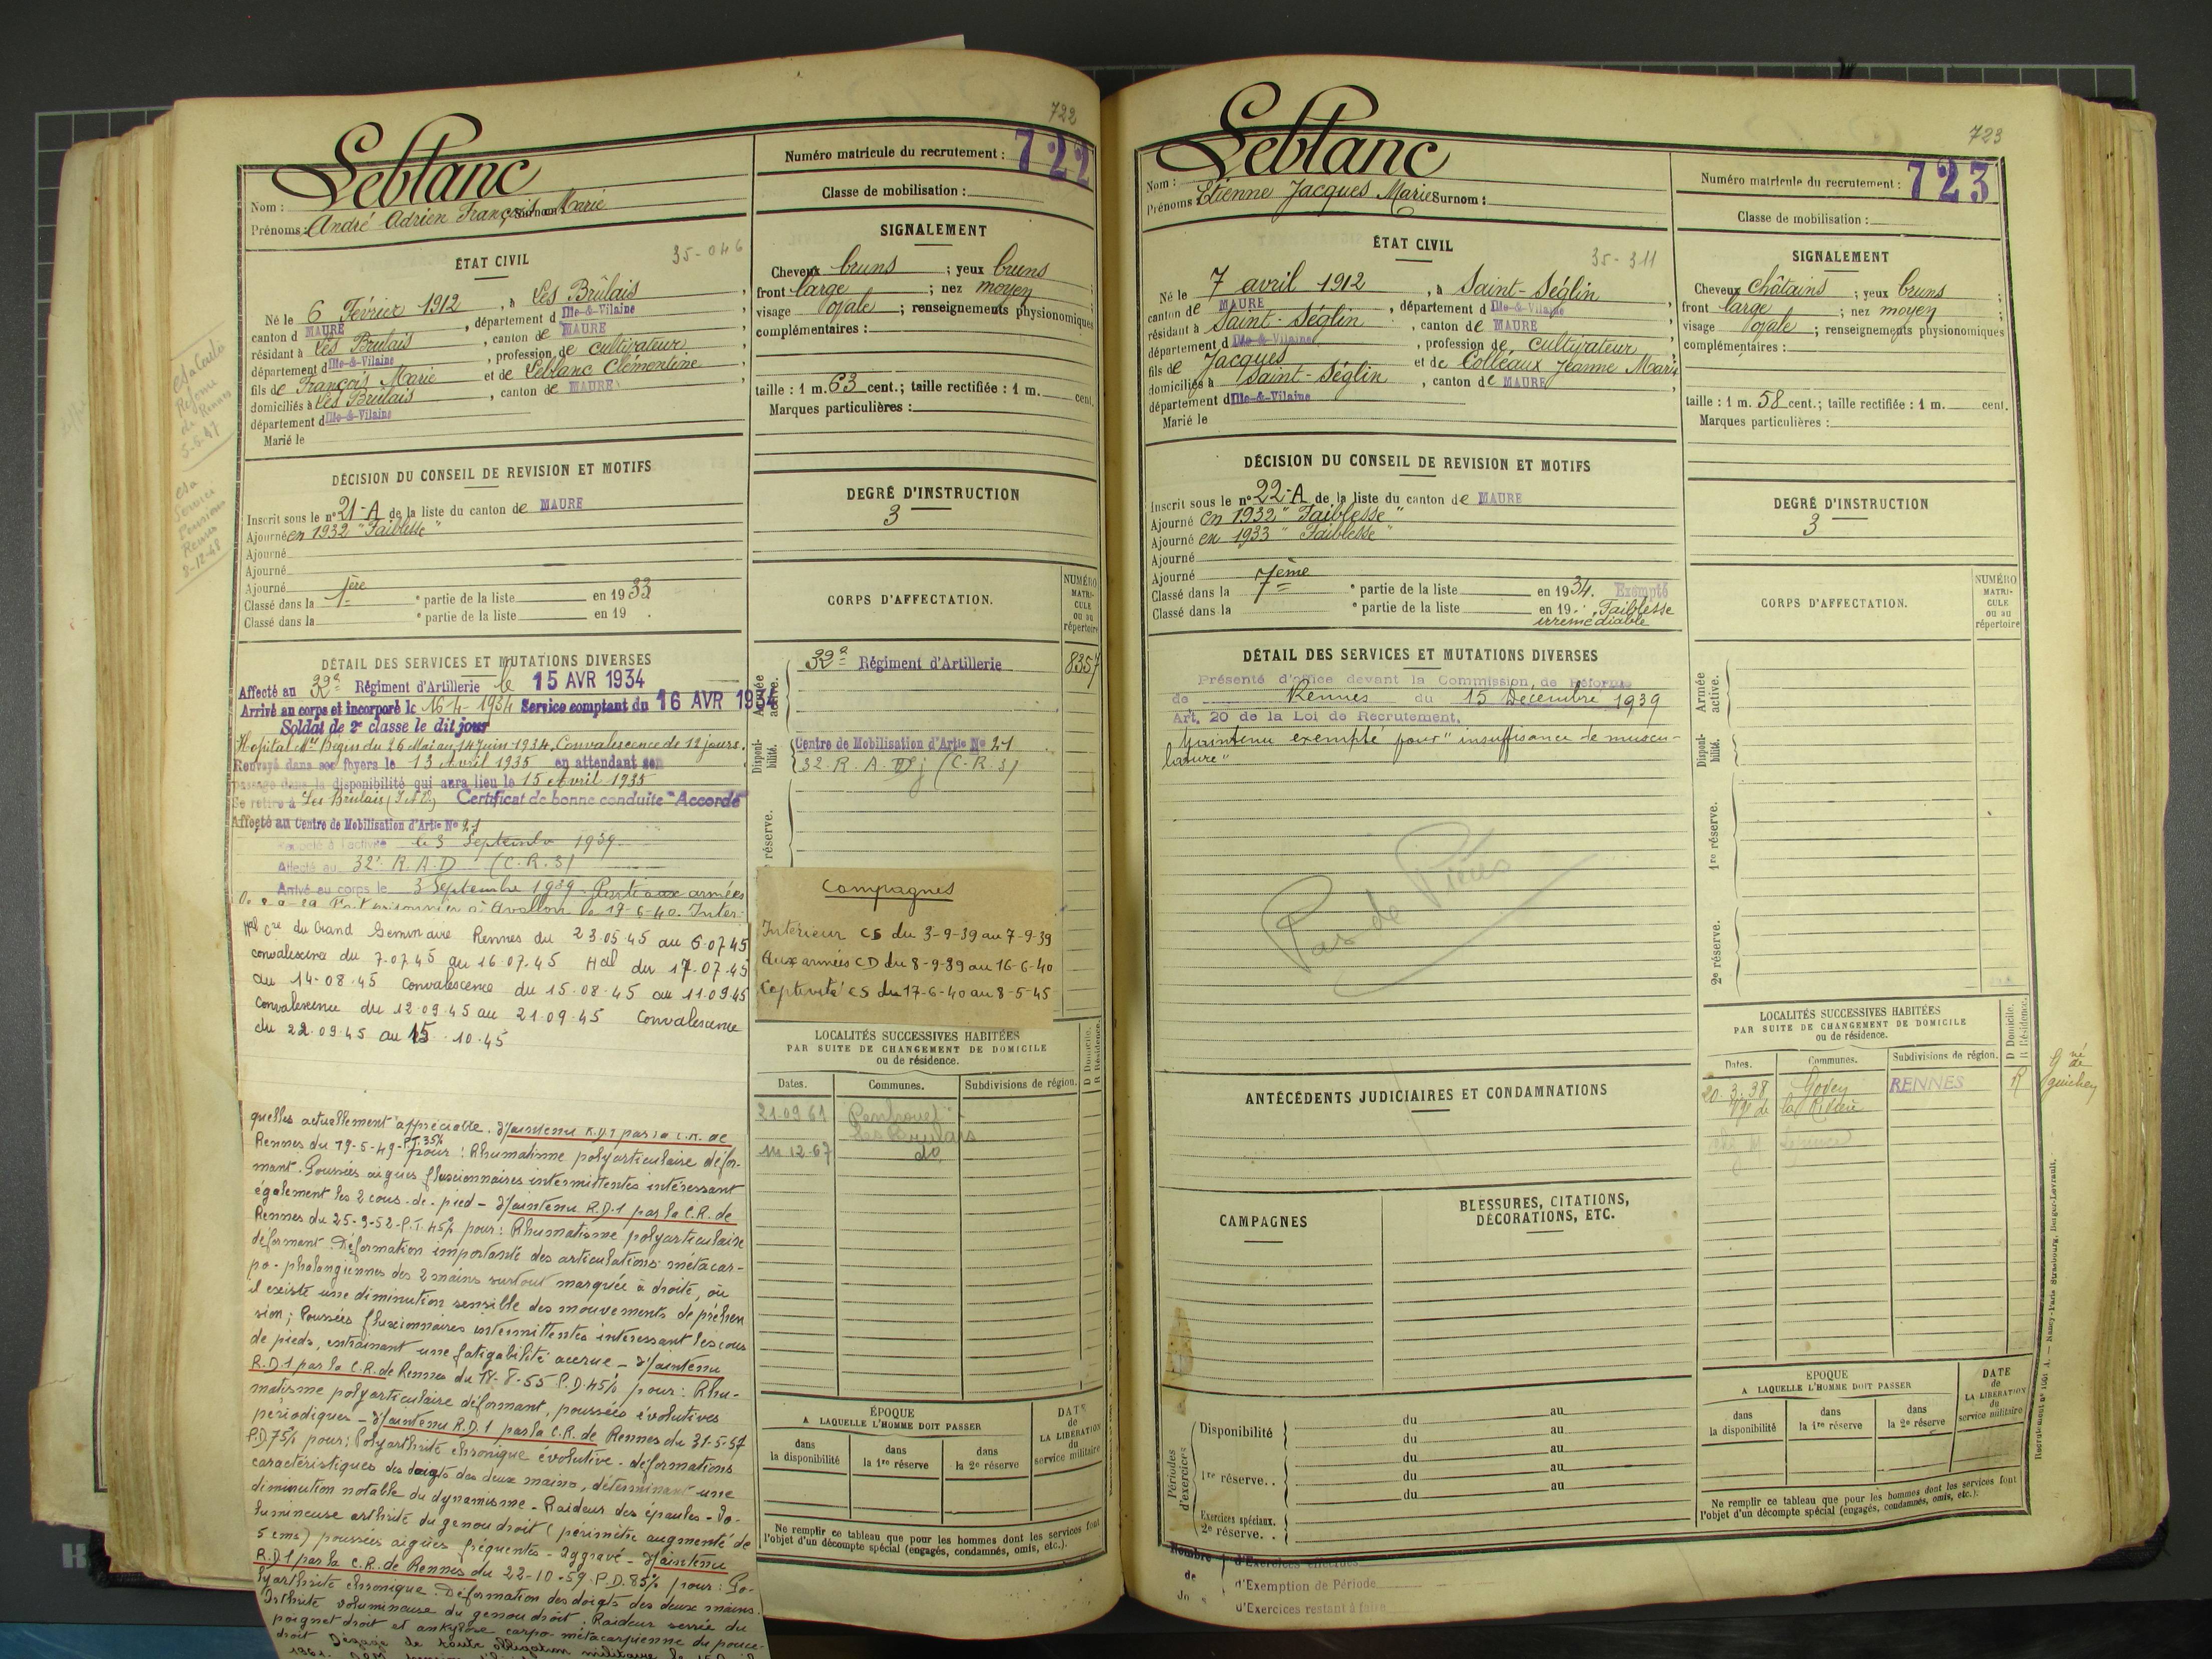 722
Leblanc
Nom :
Prénoms : André Adrien François Marie
Numéro matricule du recrutement : 722
Classe de mobilisation :
ÉTAT CIVIL
35-046
Né le 6 Février 1912, à Les Brûlais,
canton d MAURE, département d Ille-&-Vilaine,
résidant à Les Brulais, canton de MAURE,
département d Ille-&-Vilaine, profession de cultivateur,
fils de François Marie et de Leblanc Clémentine,
domiciliés à Les Brulais, canton de MAURE,
département d Ille-&-Vilaine
Marié le
SIGNALEMENT
Cheveux bruns ; yeux bruns ;
front large ; nez moyen ;
visage ovale ; renseignements physionomiques
complémentaires :
taille : 1 m. 63 cent.; taille rectifiée : 1 m. cent.
Marques particulières :
DÉCISION DU CONSEIL DE REVISION ET MOTIFS
Inscrit sous le n° 21-A de la liste du canton de MAURE
Ajourné en 1932 "Faiblesse"
Ajourné
Ajourné
Ajourné
Classé dans la 1ère e partie de la liste en 1933
Classé dans la e partie de la liste en 19 .
DEGRÉ D'INSTRUCTION
3
CORPS D'AFFECTATION.
NUMÉRO
MATRI-
CULE
ou au
répertoire
Armée active.
32e Régiment d'Artillerie 8357
Disponi-
bilité.
Centre de Mobilisation d'Artie No 21
32. R. A. D j (C.R.3)
réserve.
DÉTAIL DES SERVICES ET MUTATIONS DIVERSES
Affecté au 32e Régiment d'Artillerie le 15 AVR 1934
Arrivé au corps et incorporé le 16-4-1934 Service comptant du 16 AVR 1934
Soldat de 2e classe le dit jour
Hopital Mre Bégin du 26 Mai au 14 Juin 1934. Convalescence de 12 jours.
Renvoyé dans ses foyers le 13 Avril 1935 en attendant son
passage dans la disponibilité qui aura lieu le 15 Avril 1935
Se retire à Les Brulais (I.&V.) Certificat de bonne conduite "Accordé"
Affecté au Centre de Mobilisation d'Artie No 21
Rappelé à l'activité le 3 Septembre 1939
Affecté au 32e R.A.D (C.R.3)
Arrivé au corps le 3 Septembre 1939. Parti aux armées
Fait prisonnier à Avallon le 17-6-40. Inter-
Hal Cre du Grand Seminaire Rennes du 23.05.45 au 6.07.45
convalescence du 7.07.45 au 16.07.45 Hal du 17.07.45
au 14-08.45 Convalescence du 15.08.45 au 11.09.45
convalescence du 12.09.45 au 21.09.45 Convalescence
du 22.09.45 au 15.10.45
Campagnes
Intérieur CS du 3-9-39 au 7-9-39
Aux armées CD du 8-9-39 au 16-6-40
Captivité CS du 17-6-40 au 8-5-45
quelles actuellement appréciable. Maintenu R.D.1 par la C.R. de
Rennes du 19-5-49-P.T.35% pour : Rhumatisme polyarticulaire défor-
mant. Poussées aigues fluxionnaires intermittentes intéressant
également les 2 cous-de-pied - Maintenu R.D.1 par la C.R. de
Rennes du 25-9-52-P.T.45% pour : Rhumatisme polyarticulaire
déformant. Déformation importante des articulations métacar-
po-phalangiennes des 2 mains surtout marquée à droite, où
il existe une diminution sensible des mouvements de préhen
sion; Poussées fluxionnaires intermittentes intéressant les cous
de pieds, entrainant une fatigabilité accrue - Maintenu
R.D.1 par la C.R. de Rennes du 18-8-55 P.D.45% pour : Rhu-
matisme polyarticulaire déformant, poussées évolutives
périodiques - Maintenu R.D.1 par la C.R. de Rennes du 31-5-57
P.D 75% pour : Polyarthrite chronique évolutive - déformations
caractéristiques des doigts des deux mains, déterminant une
diminution notable du dynamisme - Raideur des épaules - Vo-
lumineuse arthrite du genou droit (périmètre augmenté de
5 cms) poussées aigües fréquentes - Aggravé - Maintenu
R.D1 par la C.R. de Rennes du 22-10-59 P.D.85% pour : Po-
lyarthrite chronique. Déformation des doigts des deux mains.
Arthrite volumineuse du genou droit. Raideur serrée du
poignet droit et ankylose carpo-métacarpienne du pouce
droit Dégagé de toute obligation militaire le
LOCALITÉS SUCCESSIVES HABITÉES
PAR SUITE DE CHANGEMENT DE DOMICILE
ou de résidence.
Dates. Communes. Subdivisions de région. D Domicile. R Résidence.
21.09.61 Penhouet
Les Brulais
12-67 do
ÉPOQUE
A LAQUELLE L'HOMME DOIT PASSER
DATE
de
LA LIBÉRATION
du
service militaire
dans
la disponibilité
dans
la 1re réserve
dans
la 2e réserve
Ne remplir ce tableau que pour les hommes dont les services font
l'objet d'un décompte spécial (engagés, condamnés, omis, etc.).
Réforme
de Rennes
5-6-47
Service
Pensions
Rennes
8-12-48
723
Leblanc
Nom :
Prénoms : Etienne Jacques Marie Surnom :
Numéro matricule du recrutement : 723
Classe de mobilisation :
ÉTAT CIVIL
35-311
Né le 7 avril 1912, à Saint-Séglin,
canton de MAURE, département d Ille-&-Vilaine,
résidant à Saint-Séglin, canton de MAURE
département d Ille-&-Vilaine, profession de cultivateur,
fils de Jacques et de Colléaux Jeanne Marie
domiciliés à Saint-Séglin, canton de MAURE,
département d Ille-&-Vilaine
Marié le
SIGNALEMENT
Cheveux châtains ; yeux bruns ;
front large ; nez moyen ;
visage ovale ; renseignements physionomiques
complémentaires :
taille : 1 m. 58 cent.; taille rectifiée : 1 m. cent.
Marques particulières :
DÉCISION DU CONSEIL DE REVISION ET MOTIFS
Inscrit sous le n° 22-A de la liste du canton de MAURE
Ajourné en 1932 "Faiblesse"
Ajourné en 1933 "Faiblesse"
Ajourné
Ajourné
Classé dans la 7ème e partie de la liste en 1934. Exempté
Classé dans la e partie de la liste en 19 . Faiblesse
irremédiable
DEGRÉ D'INSTRUCTION
3
CORPS D'AFFECTATION.
NUMÉRO
MATRI-
CULE
ou au
répertoire
Armée
active.
Disponi-
bilité.
1re réserve.
2e réserve.
DÉTAIL DES SERVICES ET MUTATIONS DIVERSES
Présenté d'office devant la Commission de Réforme
de Rennes du 15 Décembre 1939
Art. 20 de la Loi de Recrutement.
Maintenu exempté pour "insuffisance de muscu-
lature"
Pas de Pièces
LOCALITÉS SUCCESSIVES HABITÉES
PAR SUITE DE CHANGEMENT DE DOMICILE
ou de résidence.
Dates. Communes. Subdivisions de région. D Domicile. R Résidence.
20.3.38 Goven RENNES R
Vge de la Rivière
chez M
Gné de guichen
ANTÉCÉDENTS JUDICIAIRES ET CONDAMNATIONS
CAMPAGNES
BLESSURES, CITATIONS,
DÉCORATIONS, ETC.
Périodes
d'exercices
Disponibilité du au
du au
du au
1re réserve.. du au
du au
Exercices spéciaux.
2e réserve. .
ÉPOQUE
A LAQUELLE L'HOMME DOIT PASSER
DATE
de
LA LIBÉRATION
du
service militaire
dans
la disponibilité
dans
la 1re réserve
dans
la 2e réserve
Ne remplir ce tableau que pour les hommes dont les services font
l'objet d'un décompte spécial (engagés, condamnés, omis, etc.).
Nombre d'Exercices effectués
de d'Exemption de Période
d'Exercices restant à faire
Recrutement n° 1001 A. — Nancy-Paris-Strasbourg, Berger-Levrault.